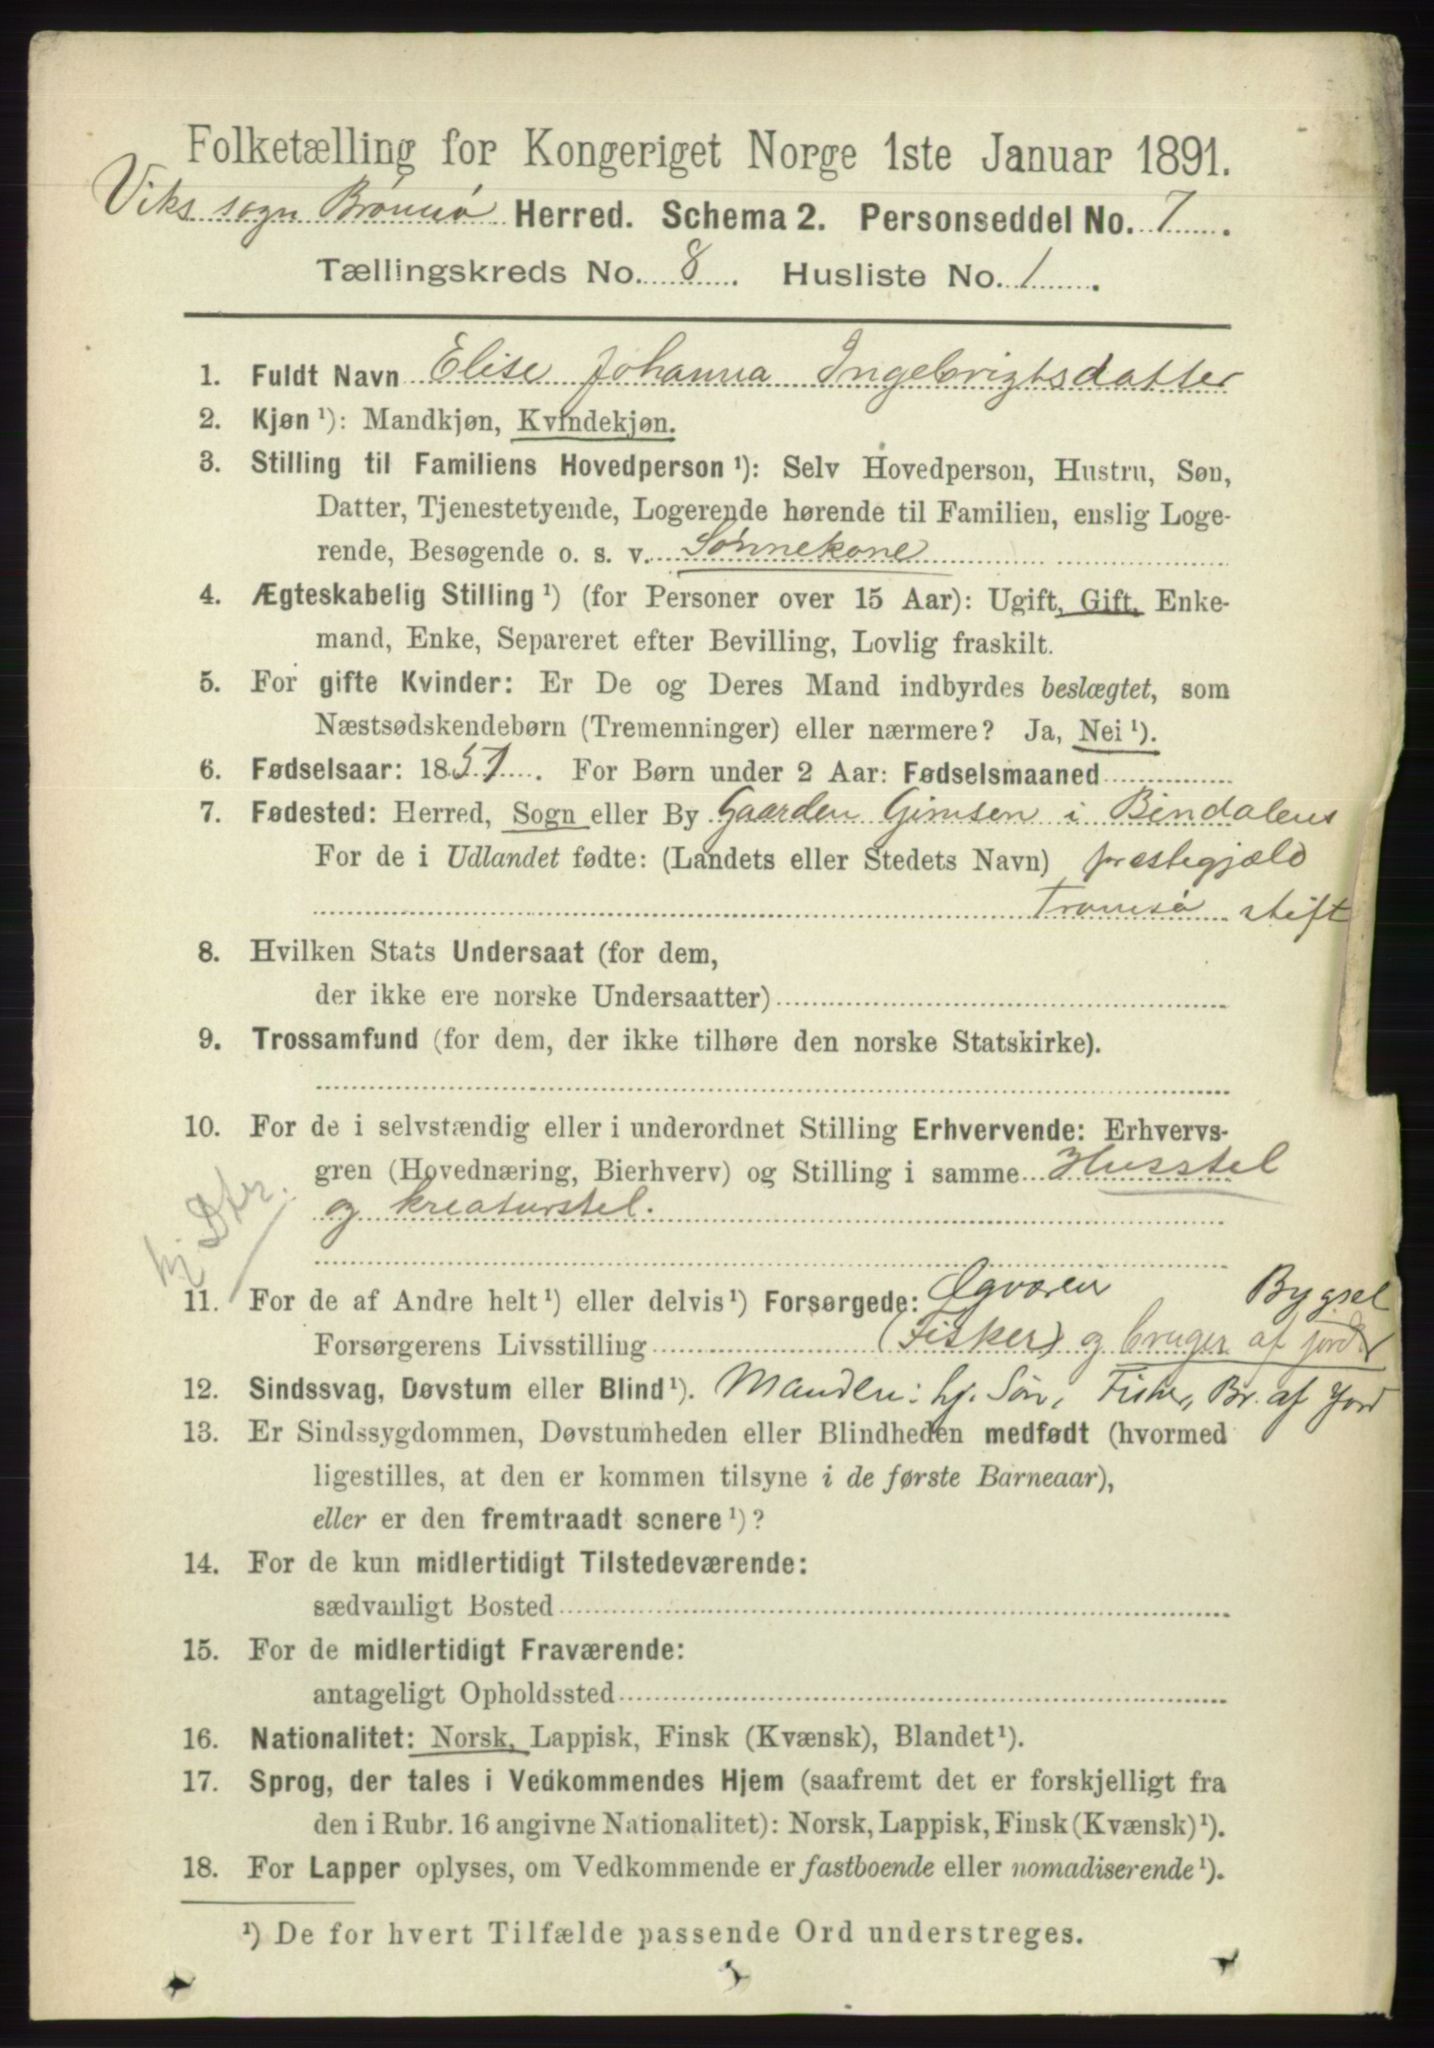 Folketælling for Kongeriget Norge 1ste Januar 1891.
Viks sogn Brønnø Herred. Schema 2. Personseddel No. 7.
Tællingskreds No. 8. Husliste No. 1.
1. Fuldt Navn Elise Johanna Ingebrigtsdatter
2. Kjøn ¹): Mandkjøn, Kvindekjøn.
3. Stilling til Familiens Hovedperson ¹): Selv Hovedperson, Hustru, Søn,
Datter, Tjenestetyende, Logerende hørende til Familien, enslig Loge-
rende, Besøgende o. s. v. Sønnekone
4. Ægteskabelig Stilling ¹) (for Personer over 15 Aar): Ugift, Gift, Enke-
mand, Enke, Separeret efter Bevilling, Lovlig fraskilt.
5. For gifte Kvinder: Er De og Deres Mand indbyrdes beslægtet, som
Næstsødskendebørn (Tremenninger) eller nærmere? Ja, Nei ¹).
6. Fødselsaar: 1851. For Børn under 2 Aar: Fødselsmaaned
7. Fødested: Herred, Sogn eller By Gaarden Gimsen i Bindalens
For de i Udlandet fødte: (Landets eller Stedets Navn) præstegjæld
Tromsø stift
8. Hvilken Stats Undersaat (for dem,
der ikke ere norske Undersaatter)
9. Trossamfund (for dem, der ikke tilhøre den norske Statskirke).
10. For de i selvstændig eller i underordnet Stilling Erhvervende: Erhvervs-
gren (Hovednæring, Bierhverv) og Stilling i samme Husstel
og kreaturstel.
hj. Dtr.
11. For de af Andre helt ¹) eller delvis ¹) Forsørgede: Bygsel
Forsørgerens Livsstilling (Fisker) og bruger af jord
12. Sindssvag, Døvstum eller Blind ¹). Manden: hj. Søn, Fisker, Br. af Jord
13. Er Sindssygdommen, Døvstumheden eller Blindheden medfødt (hvormed
ligestilles, at den er kommen tilsyne i de første Barneaar),
eller er den fremtraadt senere ¹)?
14. For de kun midlertidigt Tilstedeværende:
sædvanligt Bosted
15. For de midlertidigt Fraværende:
antageligt Opholdssted
16. Nationalitet: Norsk, Lappisk, Finsk (Kvænsk), Blandet ¹).
17. Sprog, der tales i Vedkommendes Hjem (saafremt det er forskjelligt fra
den i Rubr. 16 angivne Nationalitet): Norsk, Lappisk, Finsk (Kvænsk) ¹).
18. For Lapper oplyses, om Vedkommende er fastboende eller nomadiserende ¹).
¹) De for hvert Tilfælde passende Ord understreges.